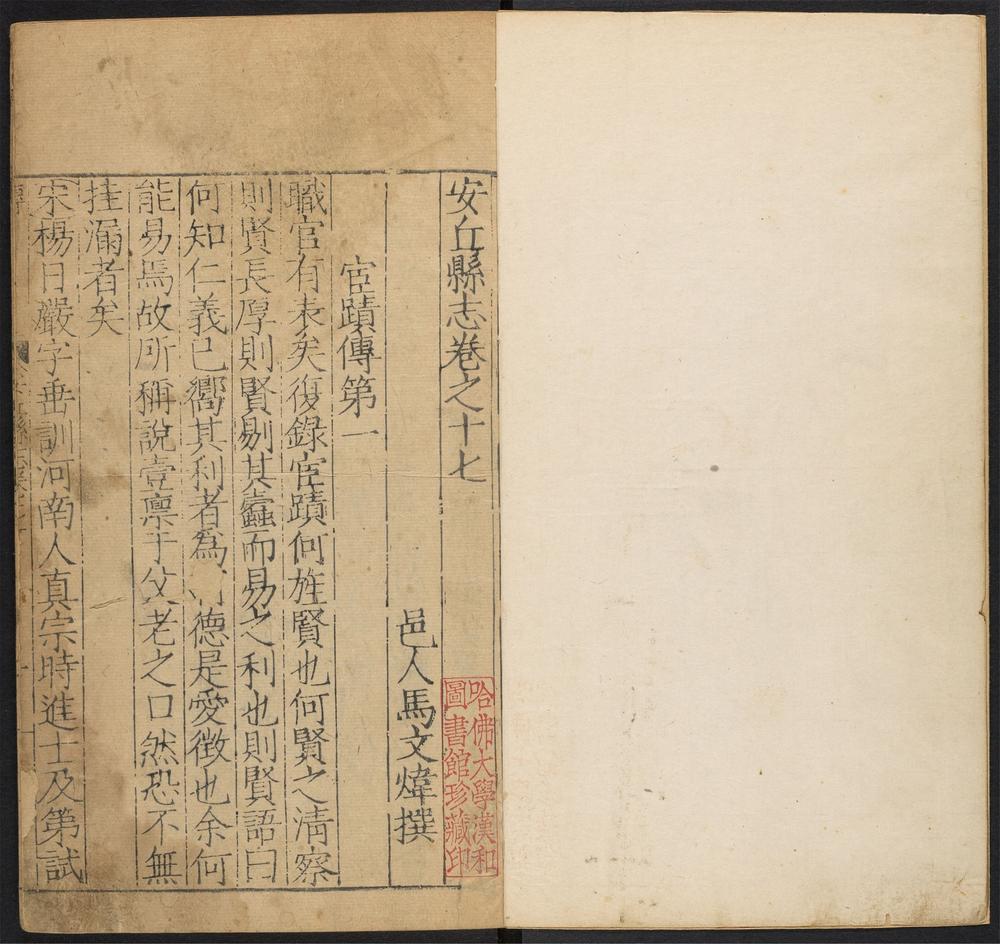 安丘縣志卷之十七
邑人馬文煒撰
宦蹟傳第一
職官有表矣復錄宦蹟何旌賢也何賢之清察
則賢長厚則賢剔其蠹而易之利也則賢語曰
何知仁義已嚮其利者爲德是愛徴也余何
能易焉故所稱說壹禀于父老之口然恐不無
挂漏者矣
宋楊日嚴字垂訓河南人真宗時進士及第試
哈佛大學漢和
圖書館珍藏印